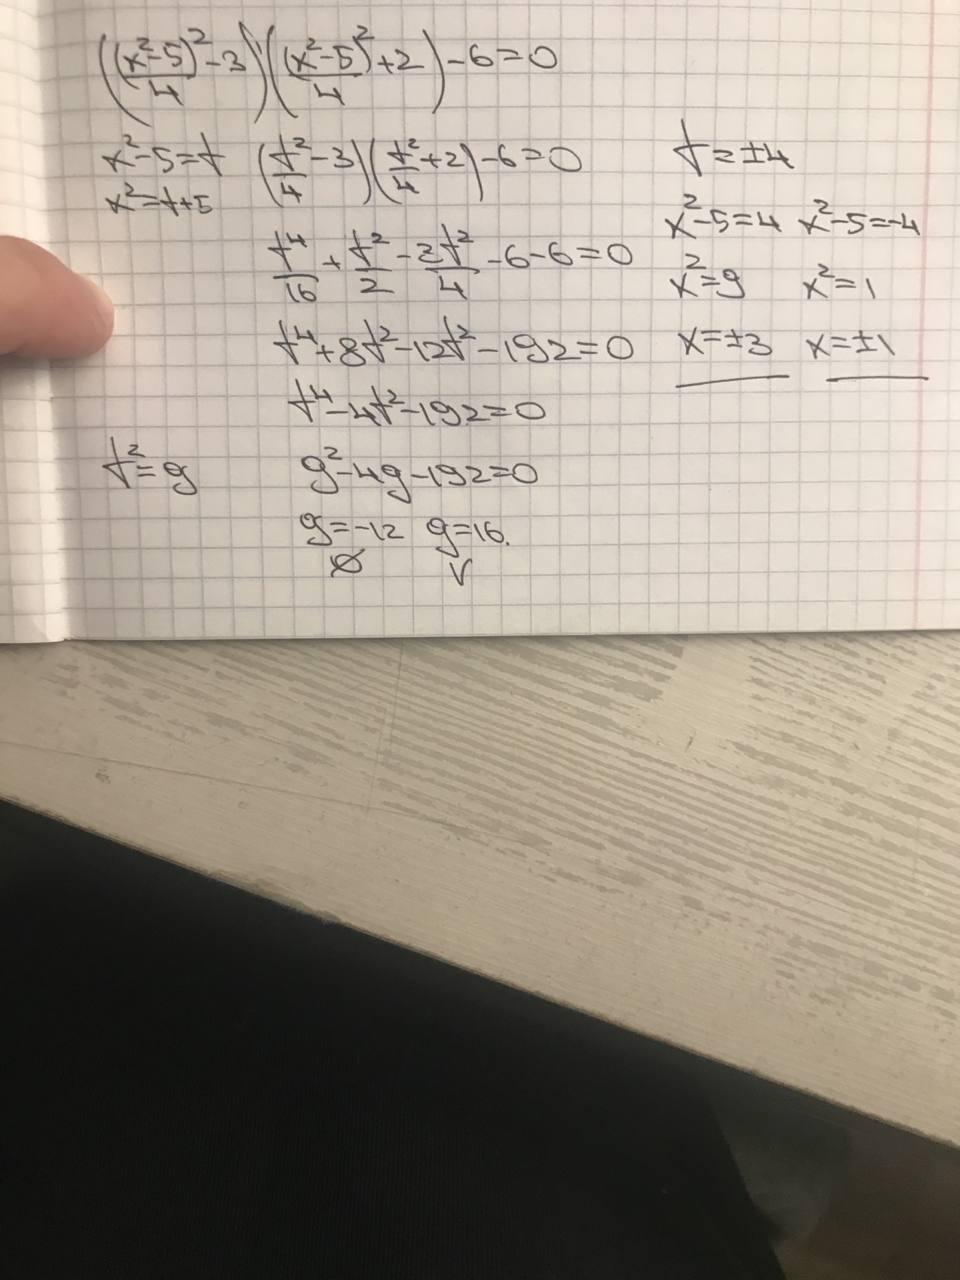 ((x²-5)²/4 - 3)((x²-5)²/4 + 2) - 6 = 0
x²-5=t (t²/4 - 3)(t²/4 + 2) - 6 = 0
x²=t+5
t⁴/16 + t²/2 - 3t²/4 - 6 - 6 = 0
t⁴+8t²-12t²-192=0
t⁴-4t²-192=0
t²=g g²-4g-192=0
g=-12 g=16.
∅ √
t=±4
x²-5=4 x²-5=-4
x²=9 x²=1
x=±3 x=±1